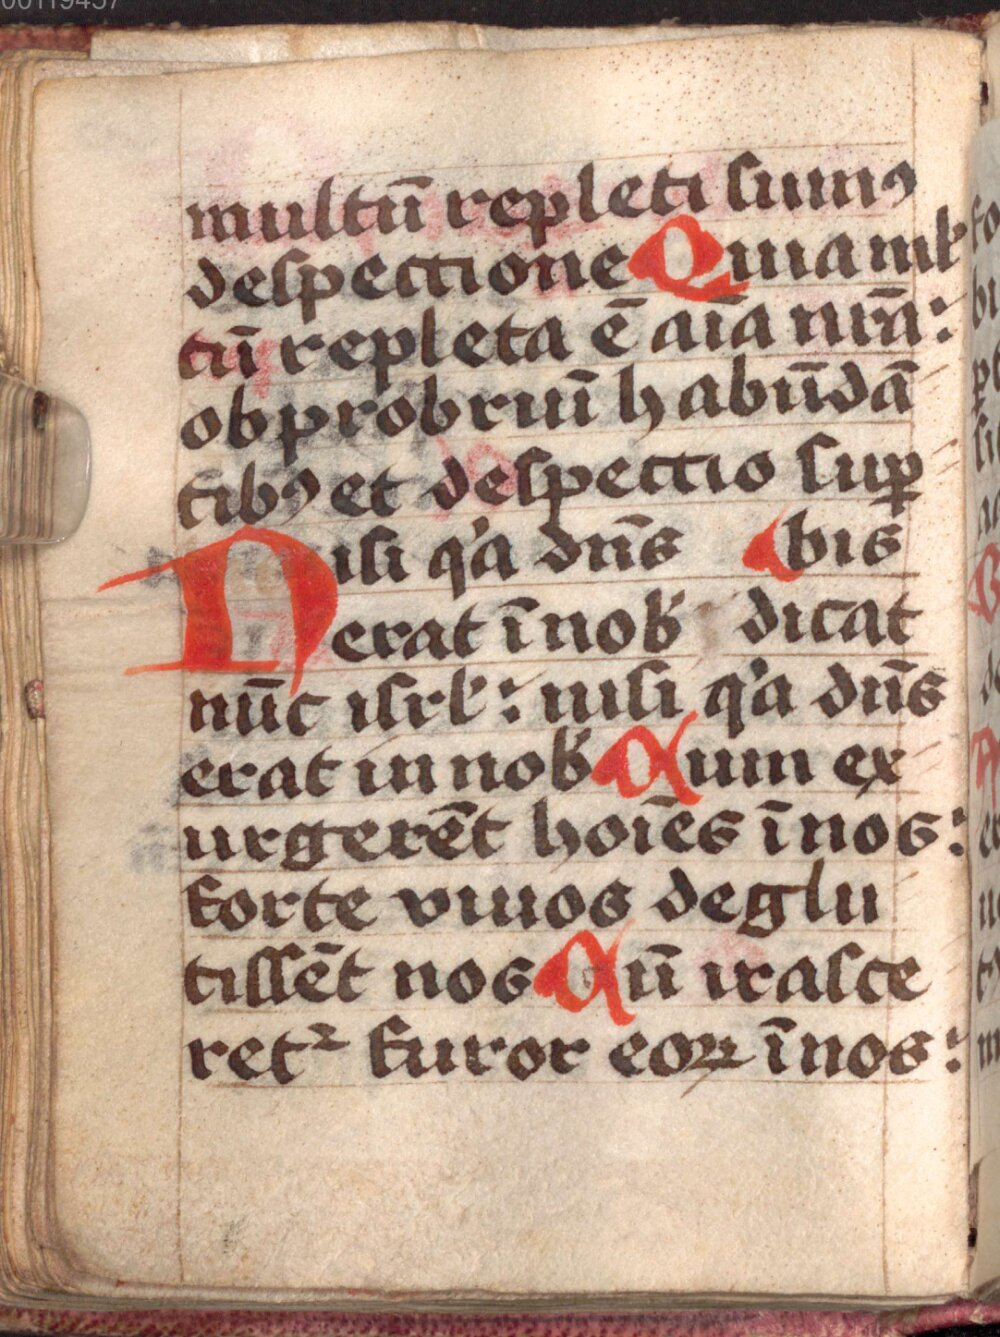 00119457
multū repleti sumꝰ
despectione Quia mĺ
tū repleta ē aīa nr̄a:
obprobriuī habūdā
tibꝰ et despectio suꝑ
Nisi qꝛa dn̄s bis
erat ī nob̾ dicat
nūc isrl̾: nisi qꝛa dn̄s
erat in nob̾ Qum ex
urgerēt hoīes ī nos:
forte viuos deglu
tissēt nos Qū irasce
retꝛ furor eoꝝ ī nos: